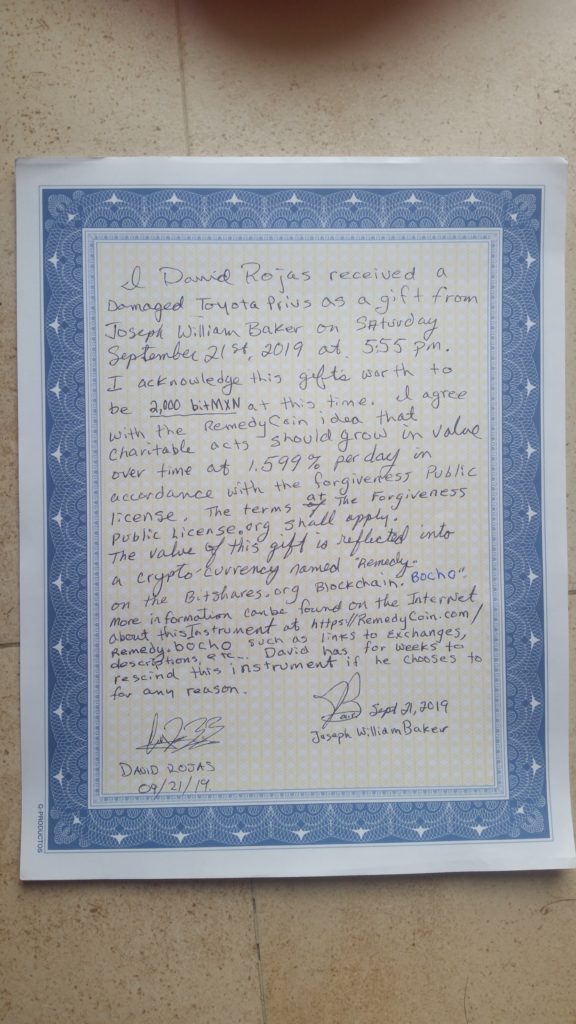 I David Rojas received a
Damaged Toyota Prius as a gift from
Joseph William Baker on SAturday
September 21st, 2019 at 5:55 pm.
I acknowledge this gift's worth to
be 2,000 bitMXN at this time. I agree
with the RemedyCoin idea that
charitable acts should grow in value
over time at 1.599% per day in
accordance with the forgiveness Public
license. The terms at The Forgiveness
Public License.org shall apply.
The value of this gift is reflected into
a crypto-currency named "Remedy.
on the Bitshares.org Blockchain. Bocho".
more information can be found on the Internet
about this Instrument at https://RemedyCoin.com/
Remedy.bocho such as links to Exchanges,
descriptions, etc... David has for weeks to
rescind this instrument if he chooses to
for any reason.
Sept 21, 2019
Joseph William Baker
DAVID ROJAS
09/21/19
PRODUCTOS